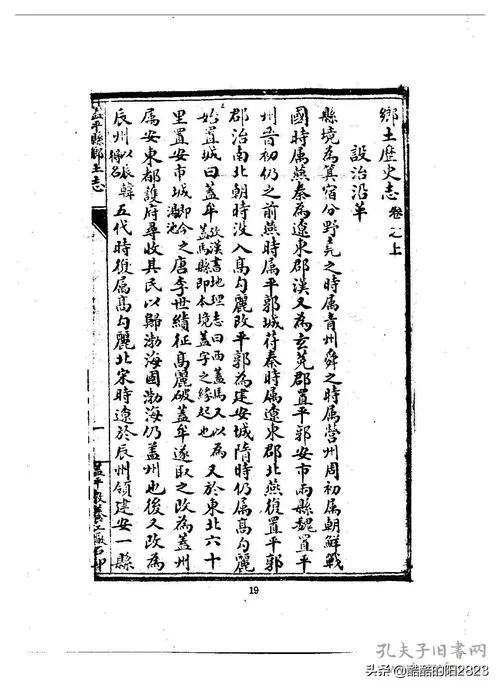 鄉土歷史志 卷之上
設治沿革
縣境為箕宿分野堯之時属青州舜之時属營州周初属朝鮮戰
國時属燕秦為遼東郡漢又為玄菟郡置平郭安市兩縣魏置平
州晉初仍之前燕時属平郭城苻秦時属遼東郡北燕復置平郭
郡治南北朝時没入高勾麗改平郭為建安城隋時仍属高勾麗
始置城曰蓋牟 攷漢書地理志曰西蓋馬又以為
蓋馬縣即本境蓋字之緣起也 又於東北六十
里置安市城 即今之
湯池 唐李世績征高麗破蓋牟遂取之改為蓋州
属安東都護府尋收其民以歸渤海國渤海仍蓋州也後又改為
辰州 以辰韓
得名 五代時復属高勾麗北宋時遼於辰州領建安一縣
蓋平縣鄉土志
一
蓋平教養工廠石印
19
孔夫子旧书网
头条 @酷酷的阳2823